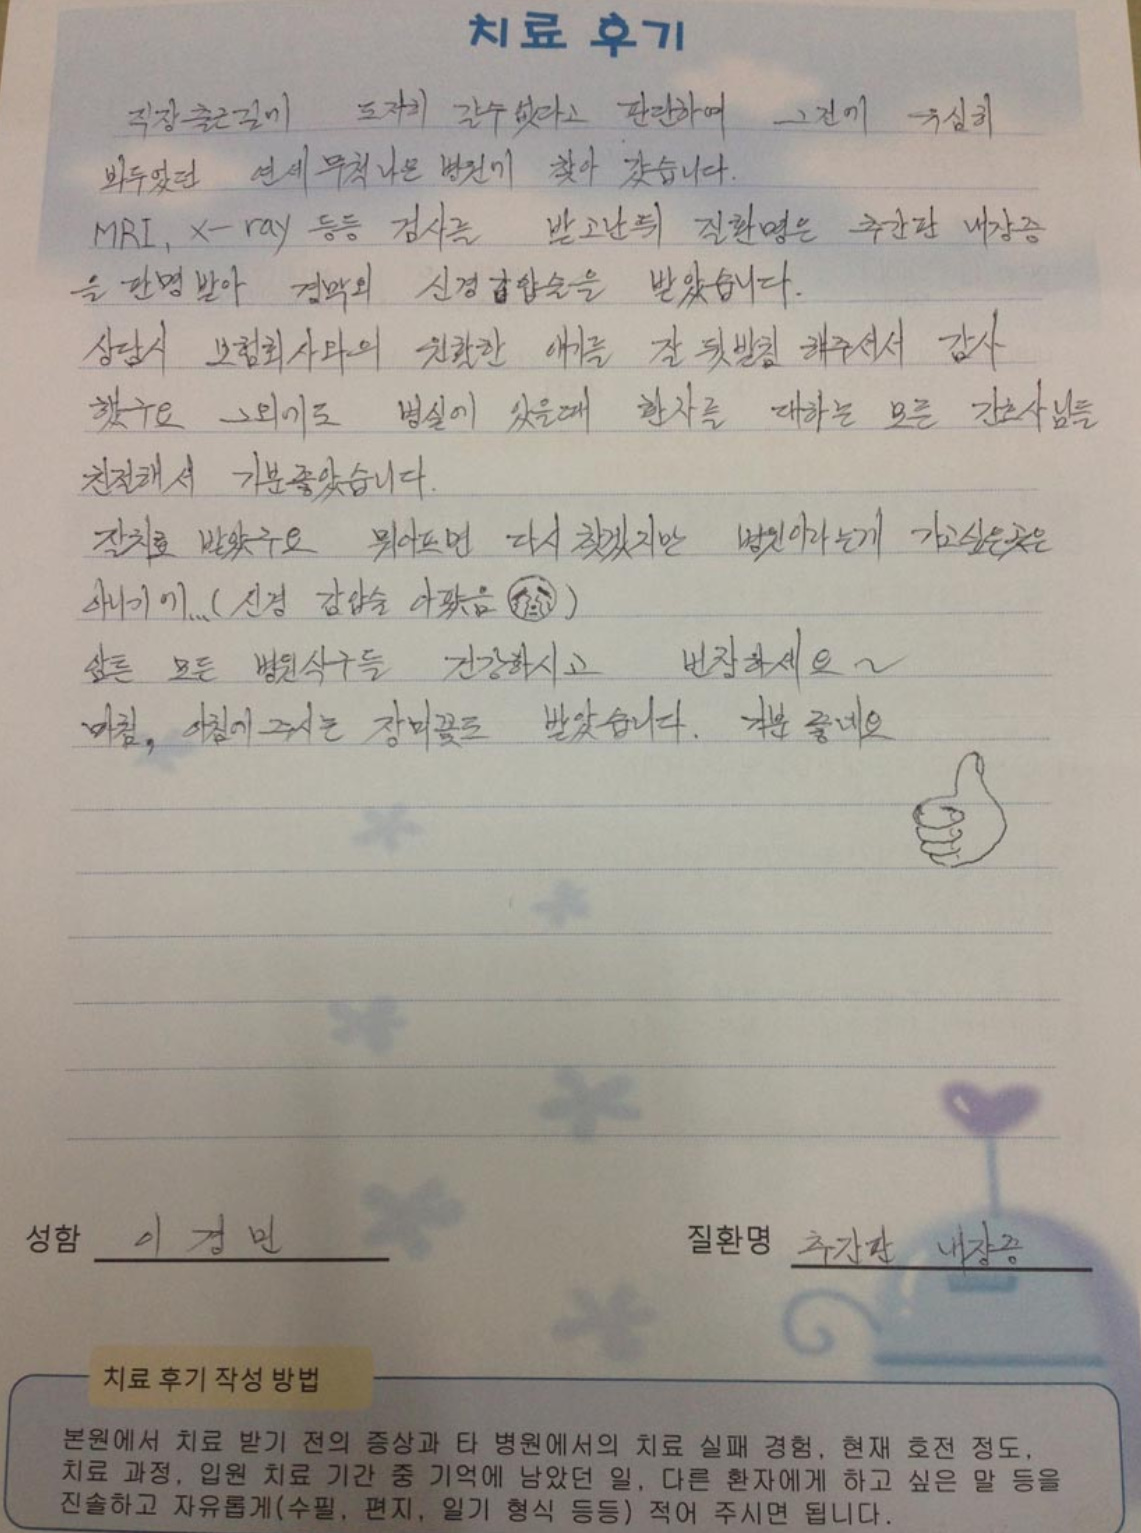 치료 후기
직장출근길에 도저히 갈수 없다고 판단하여 그전에 유심히
봐두었던 연세무척나은 병원에 찾아 갔습니다.
MRI, x-ray 등등 검사를 받고난뒤 질환명은 추간판 내장증
을 판명 받아 경막외 신경감압술을 받았습니다.
상담시 보험회사와의 원활한 얘기를 잘 뒷받침 해주셔서 감사
했구요 그외에도 병실에 있을때 환자를 대하는 모든 간호사님들
친절해서 기분좋았습니다.
잘치료 받았구요 뭐아프면 다시 찾겠지만 병원이라는게 가고싶은곳은
아니기에...(신경 감압술 아팠음)
암튼 모든 병원식구들 건강하시고 번창하세요~
마침, 아침에 주시는 장미꽃도 받았습니다. 기분 좋네요
성함 이경민 질환명 추간판 내장증
치료 후기 작성 방법
본원에서 치료 받기 전의 증상과 타 병원에서의 치료 실패 경험, 현재 호전 정도,
치료 과정, 입원 치료 기간 중 기억에 남았던 일, 다른 환자에게 하고 싶은 말 등을
진솔하고 자유롭게(수필, 편지, 일기 형식 등등) 적어 주시면 됩니다.